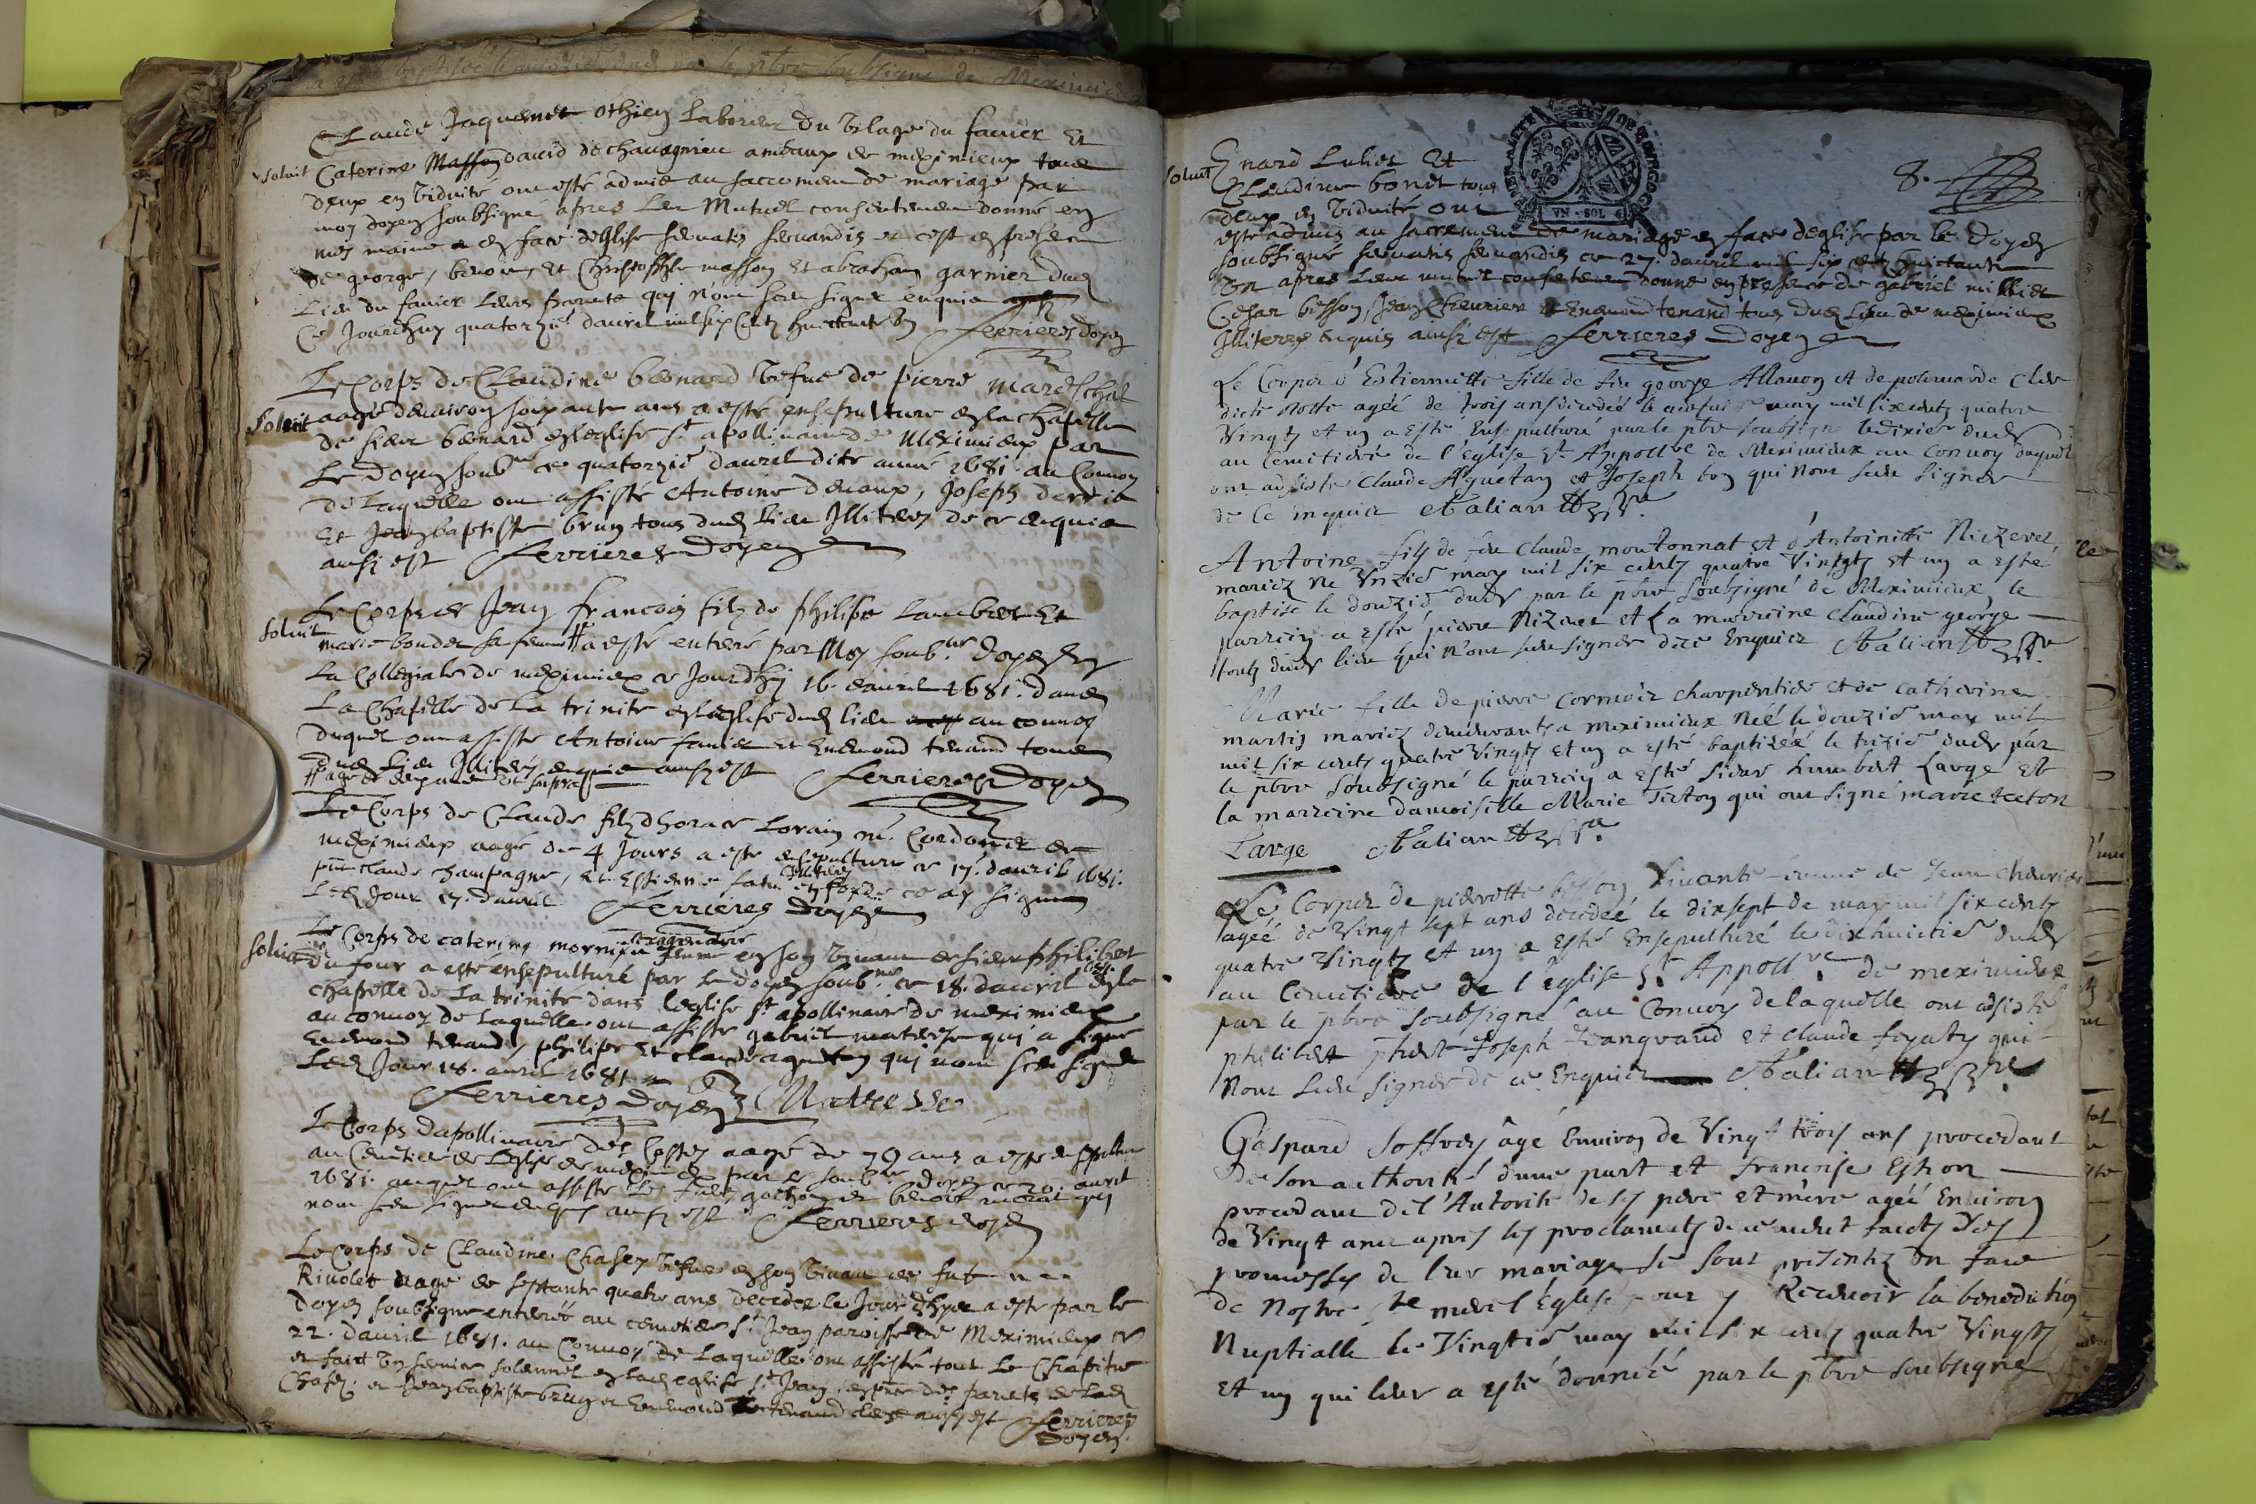 Claude Jaquemet othien laboureur du vilage du favier Et
solvit Caterine Masson david de chavagnieu ambaux de meximieux tous
deux en viduité ont esté admis au sacrement de mariage par
moy doyen soubsigné apres leur Mutuel consentement donné en
mes mains en face deglise servatis servandis et c'est en presence
de george, benoit, Et Christophle masson Et abraham garnier dud
Lieu du favier leurs parents qui nont sceu signe enquis
Ce Jourdhuy quatorzie davril mil six Cents huictante Un ferrieres doyen
Le Corps de Claudine benard vefue de pierre mareschal
solvit aagée denviron soixante ans a esté ensepulturé en la chapelle
de sieur benard en leglise st apollinaire de Meximieux par
Le doyen soubne ce quatorzie davril dite année 1681. au Convoy
de laquelle ont assisté Antoine devaux, Joseph
Et Jean baptiste brun tous dud Lieu Illiteres de ce enquis
ainsi est ferrieres doyen
Le Corps de Jean francois filz de philipe Et
solvit marie bondet sa femme a esté enterré par Moy soubne doyen en
La Collegiale de meximieux ce Jourdhuy 16. davril 1681. dans
La Chapelle de La trinité en leglise dud lieu au convoy
duquel ont assisté Antoine favier et Enemond tenand tous
dud lieu Illiteres enquis ainsi est ferrieres Doyen
Le Corps de Claude filz dhorace Lorain me Cordonier de
meximieux aagé de 4 Jours a esté ensepulturé ce 17. davril 1681.
pnt claude champagne, et Estienne
Led Jour 17. davril ferrieres doyen
Le Corps de caterine femme en son vivant de sieur philibert
solvit du four a esté ensepulturé par le doyen soubne ce 18. davril en la
chapelle de la trinité dans leglise st apollinaire de meximieux
au convoy de laquelle ont assisté gabriel mathesse qui a signé
Enemond tenand, philipe Et claude aguetan qui nont sceu signe
Led Jour 18. avril 1681.
ferrieres doyen Mathesse
Le Corps dapollinaire aagé de 70 ans a esté ensepulturé
au Cemetiere de leglise de meximieux par le soubne doyen ce 20. avril
1681. auquel ont assisté et benoit qui
nont sceu signe enquis ainsi est ferrieres doyen
Le Corps de Claudine Chasey vefue en son vivant de
Rivolet aagé de septante quatre ans decedee le Jour dhyer a esté par le
doyen soubsigne enterré au cemetiere st Jean paroisse de Meximieux ce
22. davril 1681. au Convoy de laquelle ont assisté tout le Chapitre
et fait un service solennel en lad eglise st Jean, en pnce des parents de lad
Chasey. et Jean baptiste brun et Enemond tenand ainsi est ferrieres
doyen.
8.
solvit Enard Luhet Et
Claudine bonet tous
deux en viduité ont
esté admis au sacrement de mariage en face deglise par le doyen
soubsigné servatis servandis ce 27. davril mil six cents huictante
Un apres leur mutuel consentement donné en presence de gabriel milliet
Cesar besson, Jean Chevrier Et Enemond tenand tous dud Lieu de meximieux
Illiteres enquis ainsi est ferrieres doyen
Le Corps d'Estiennette fille de feu george Allavon et de
dicte agéé de trois ans decedéé le may mil six cents quatre
Vingts et un a esté Ensepulturé par le pbre soubsigne le dixie dud
au Cemitiere de l'Eglise St Appollre de Meximieux au Convoy duquel
ont adsisté Claude Aguetan et Joseph bon qui nont sceu signer
de ce enquis Aalian
Antoine fils de feu Claude moutonnat et d'Antoinette Nizeret
mariez né Unzie may mil six cents quatre Vingts et un a esté
baptisé le douzie dud par le pbre soubsigné de Meximieux, le
parrein a esté pierre Nizeret et la marreine Claudine george
touts dud lieu qui n'ont sceu signer de ce Enquis Aalian
Marie fille de pierre Cormoz charpentier et de Catherine
martin mariez demeurants a meximieux Néé le douzie may mil
mil six cents quatre Vingts et un a esté baptizéé le trezie dud par
le pbre soubsigné le parrein a esté sieur humbert Large Et
la marreine damoiselle Marie Teeton qui ont signé marie teeton
Large Aalian
Le Corps de pierrette besson Vivante femme de Jean chevrier
agéé de Vingt sept ans decedéé le dixsept de may mil six cents
quatre Vingts et un a esté Ensepulturé le dixhuictie dud
au Cemetiere de l'Eglise St Appollre de meximieux
par le pbre soubsigné au Convoy de laquelle ont adsisté
philibert Joseph Janguand et Claude qui
Nont sceu signer de ce Enquis Aalian
Gaspard Joffrey âgé Environ de Vingt trois ans procedant
de son authorité d'une part et Francoise Estion
procedant de l'Autorité de ses pere et mere agéé Environ
de Vingt ans apres les proclamats deuement faicts des
promesses de leur mariage se sont presentez En face
de Nostre Ste mere l'Eglise pour y Recevoir la benediction
Nuptialle le Vingtie may mil six cents quatre Vingts
et un qui leur a esté donnéé par le pbre soubsigné